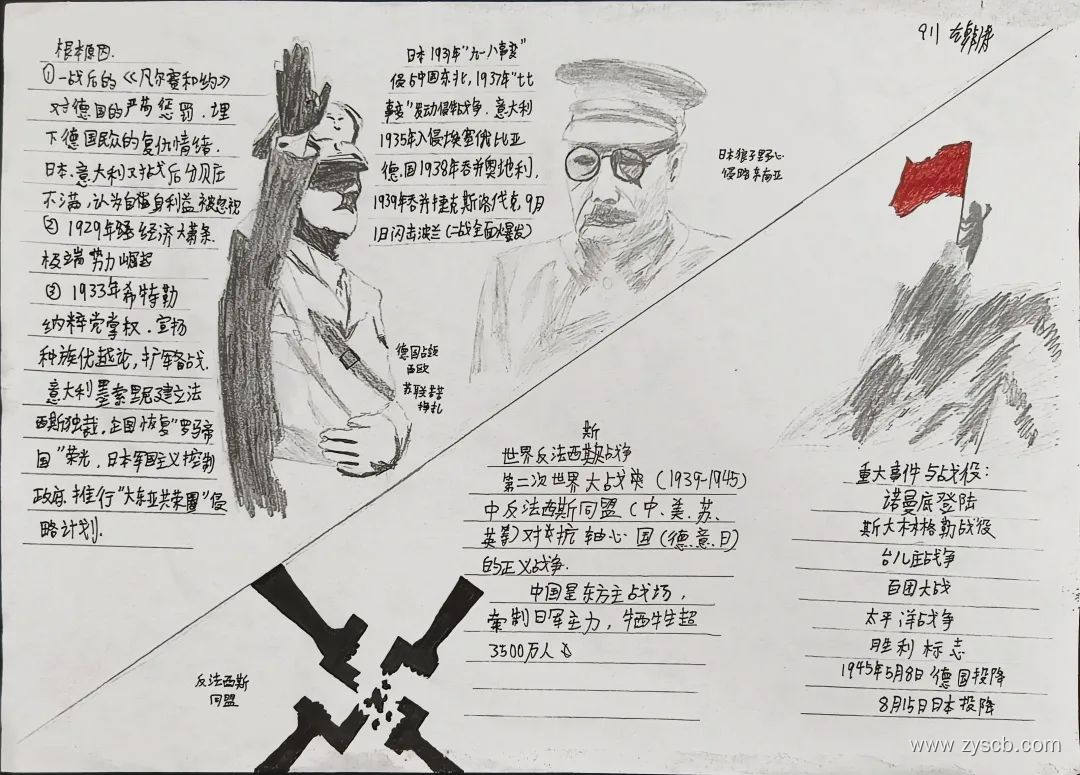 911
根本原因.
①一战后的《凡尔赛和约》
对德国的严苛惩罚.埋
下德国民众的复仇情绪.
日本、意大利又对战后分赃
不满,认为自强自利益被忽视
② 1929年经济大萧条.
极端势力崛起
③ 1933年希特勒
纳粹党掌权.宣扬
种族优越论,扩军备战.
意大利墨索里尼建立法
西斯独裁,企图恢复"罗马帝
国"荣光,日本军国主义控制
政府,推行"大东亚共荣圈"侵
略计划.
日本1931年"九一八事变"
侵占中国东北,1937年"七七
事变"发动侵华战争.意大利
1935年入侵埃塞俄比亚
德国1938年吞并奥地利,
1939年吞并捷克斯洛伐克,9月
1日闪击波兰(二战全面爆发)
日本狼子野心
侵略东南亚
德国占领
西欧
苏联
挣扎
斯
世界反法西斯战争
第二次世界大战(1939-1945)
中反法西斯同盟(中、美、苏、
英等)对抗轴心国(德、意、日)
的正义战争.
中国是东方主战场,
牵制日军主力,牺牲超
3500万人
反法西斯
同盟
重大事件与战役:
诺曼底登陆
斯大林格勒战役
台儿庄战争
百团大战
太平洋战争
胜利标志
1945年5月8日德国投降
8月15日日本投降
www.zyscb.com